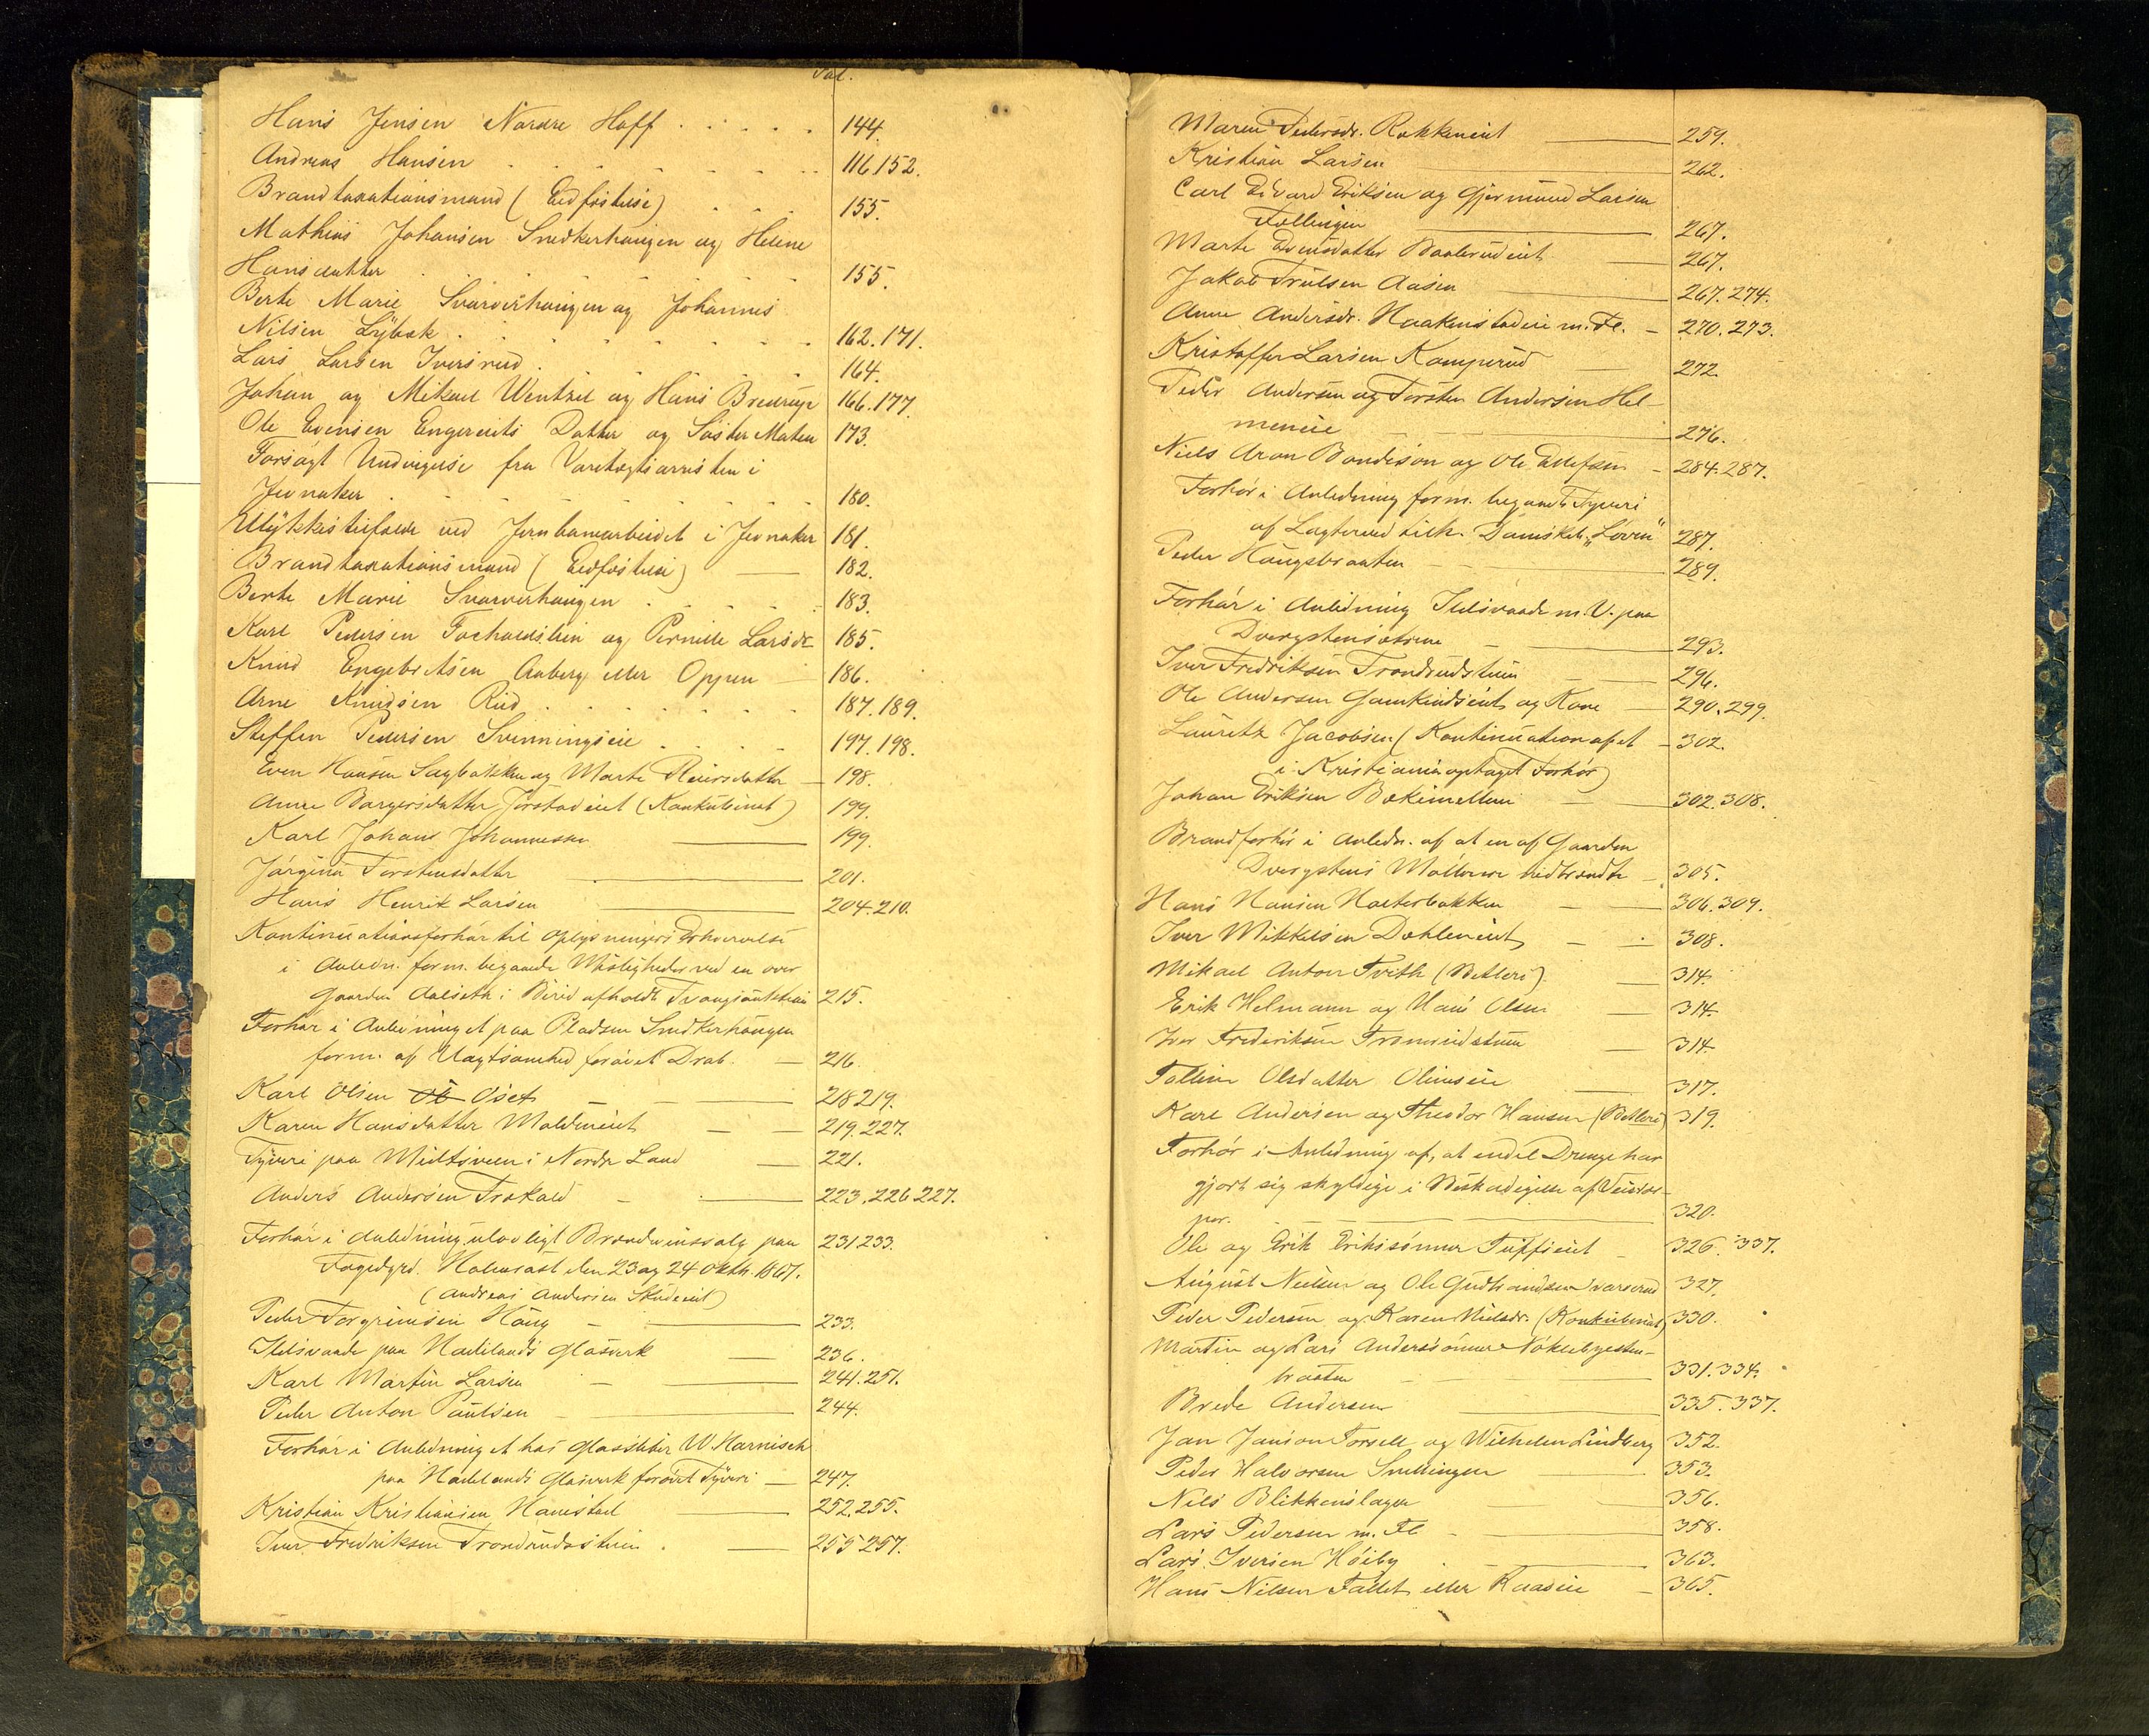 Fol.
Hans Jensen Nordre Hoff . . . . . 144.
Andreas Hansen . . . . . . . 116. 152.
Brandtaxationsmænd (Edfæstelse) . . . 155.
Mathias Johansen Snedkerhaugen og Helene
Hansdatter . . . . . . . 155.
Berte Marie Svarverhaugen og Johannes
Nilsen Lybæk . . . . . . . 162. 171.
Lars Larsen Iversrud . . . . . 164.
Johan og Mikael Wentzel og Hans Bredrup 166. 177.
Ole Evensen Engereiets Datter og Søster Maten 173.
Forsøgt Undvigelse fra Varetægtsarresten i
Jevnaker . . . . . . . . 180.
Ulykkestilfælde ved Jernbanearbeidet i Jevnaker 181.
Brandtaxationsmænd (Edfæstelse) — 182.
Berte Marie Svarverhaugen . . . . . 183.
Karl Pedersen Fochaldseien og Pernille Larsdr. 185.
Knud Engebretsen Aaberg eller Oppen — 186.
Arne Knudsen Rud . . . . . . . 187. 189.
Steffen Pedersen Svenningseie . . . . 197. 198.
Even Hansen Sagbakken og Marte Reiersdatter — 198.
Anne Borgersdatter Jørstadeiet (Konkubinat) 199.
Karl Johans Johannessen — 199.
Jørgine Torstensdatter — 201.
Hans Henrik Larsen — 204. 210.
Kontinuationsforhør til Oplysningers Erhvervelse
i Anledn. form. begaaede Misligheder ved en over
Gaarden Aalseth i Birid afholdt Tvangsauktion 215.
Forhør i Anledning et paa Pladsen Snedkerhaugen
form. af Uagtsomhed forøvet Drab. — 216.
Karl Olsen Øset — — — 218 219.
Karen Hansdatter Moldeneiet — — 219. 227.
Tyveri paa Midtsveen i Nordre Land — 221.
Anders Andersen Trøkald — — 223. 226 227.
Forhør i Anledning ulovligt Brændevinssalg paa 231 233.
Fagedgrd. Holmsæst den 23 og 24 Oktb. 1867.
(Andreas Andersen Studeiet)
Peder Torgrimsen Haug — — 233.
Ildsvaade paa Hadelands Glasværk — 236.
Karl Martin Larsen — — 241. 251.
Peder Anton Paulsen — — 244.
Forhør i Anledning et hos Glassliber W. Harnisch
paa Hadelands Glasværk forøvet Tyveri — 247.
Kristian Kristiansen Hamstad — 252. 255.
Iver Fredriksen Trondrudsstuen . — 255 257.
Maren Pedersdr. Rækkeneiet — 259.
Kristian Larsen — 262.
Carl Edvard Eriksen og Gjermund Larsen
Follingen — 267.
Marte Evensdatter Baalerudeiet — 267.
Jakob Trulsen Aasen — 267. 274.
Anne Andersdr. Haakenstadeie m. Fl. — 270. 273.
Kristoffer Larsen Kamperud — 272.
Peder Andersen og Torsten Andersen Hel-
meneie — 276.
Niels Aron Bondeson og Ole Ellefsen — 284. 287.
Forhør i Anledning form. begaaet Tyveri
af Lægterud tilh. Dampskib „Løven“ 287.
Peder Haugsbraaten — — 289.
Forhør i Anledning Ildsvaade m. V. paa
Dvergstensætrene — — 293.
Iver Fredriksen Trondrudstuen — — 296.
Ole Andersen Gamkindseiet og Kone — 290. 299.
Lauritz Jacobsen (Kontinuation af et — 302.
i Kristiania optaget Forhør)
Johan Eriksen Bækimellem — — 302. 308.
Brandforhør i Anledn. af at en af Gaarden
Dvergstens Møllerne nedbrændte — 305.
Hans Hansen Hæsterbakken — — 306. 309.
Iver Mikkelsen Dæhleneiet — — 308.
Mikael Anton Tvith (Betleri). — 314.
Erik Helmann og Hans Olsen — 314.
Iver Frederiksen Tronrudstuen — 314.
Talline Olsdatter Olimseie — 317.
Karl Andersen og Theodor Hansen (Betleri) 319.
Forhør i Anledning af, at endel Drenge har
gjort sig skyldige i Beskadigelse af Veistol-
per. — 320.
Ole og Erik Erikssønner Tüffeiet — 326. 337.
August Nielsen og Ole Gudbrandsen Ivarsrud 327.
Peder Pedersen og Karen Nielsdr. (Konkubinat) 330.
Martin og Lars Anderssønner Nøklebyesten-
braaten — 331. 334.
Brede Andersen — 335. 337.
Jan Janson Torsell og Wilhelm Lindberg 352.
Peder Halvorsen Snellingen — 353.
Nils Blikkenslager — 356.
Lars Pedersen m. Fl. — 358.
Lars Iversen Høiby . — 363.
Hans Nilsen Fallet eller Raaseie — 365.